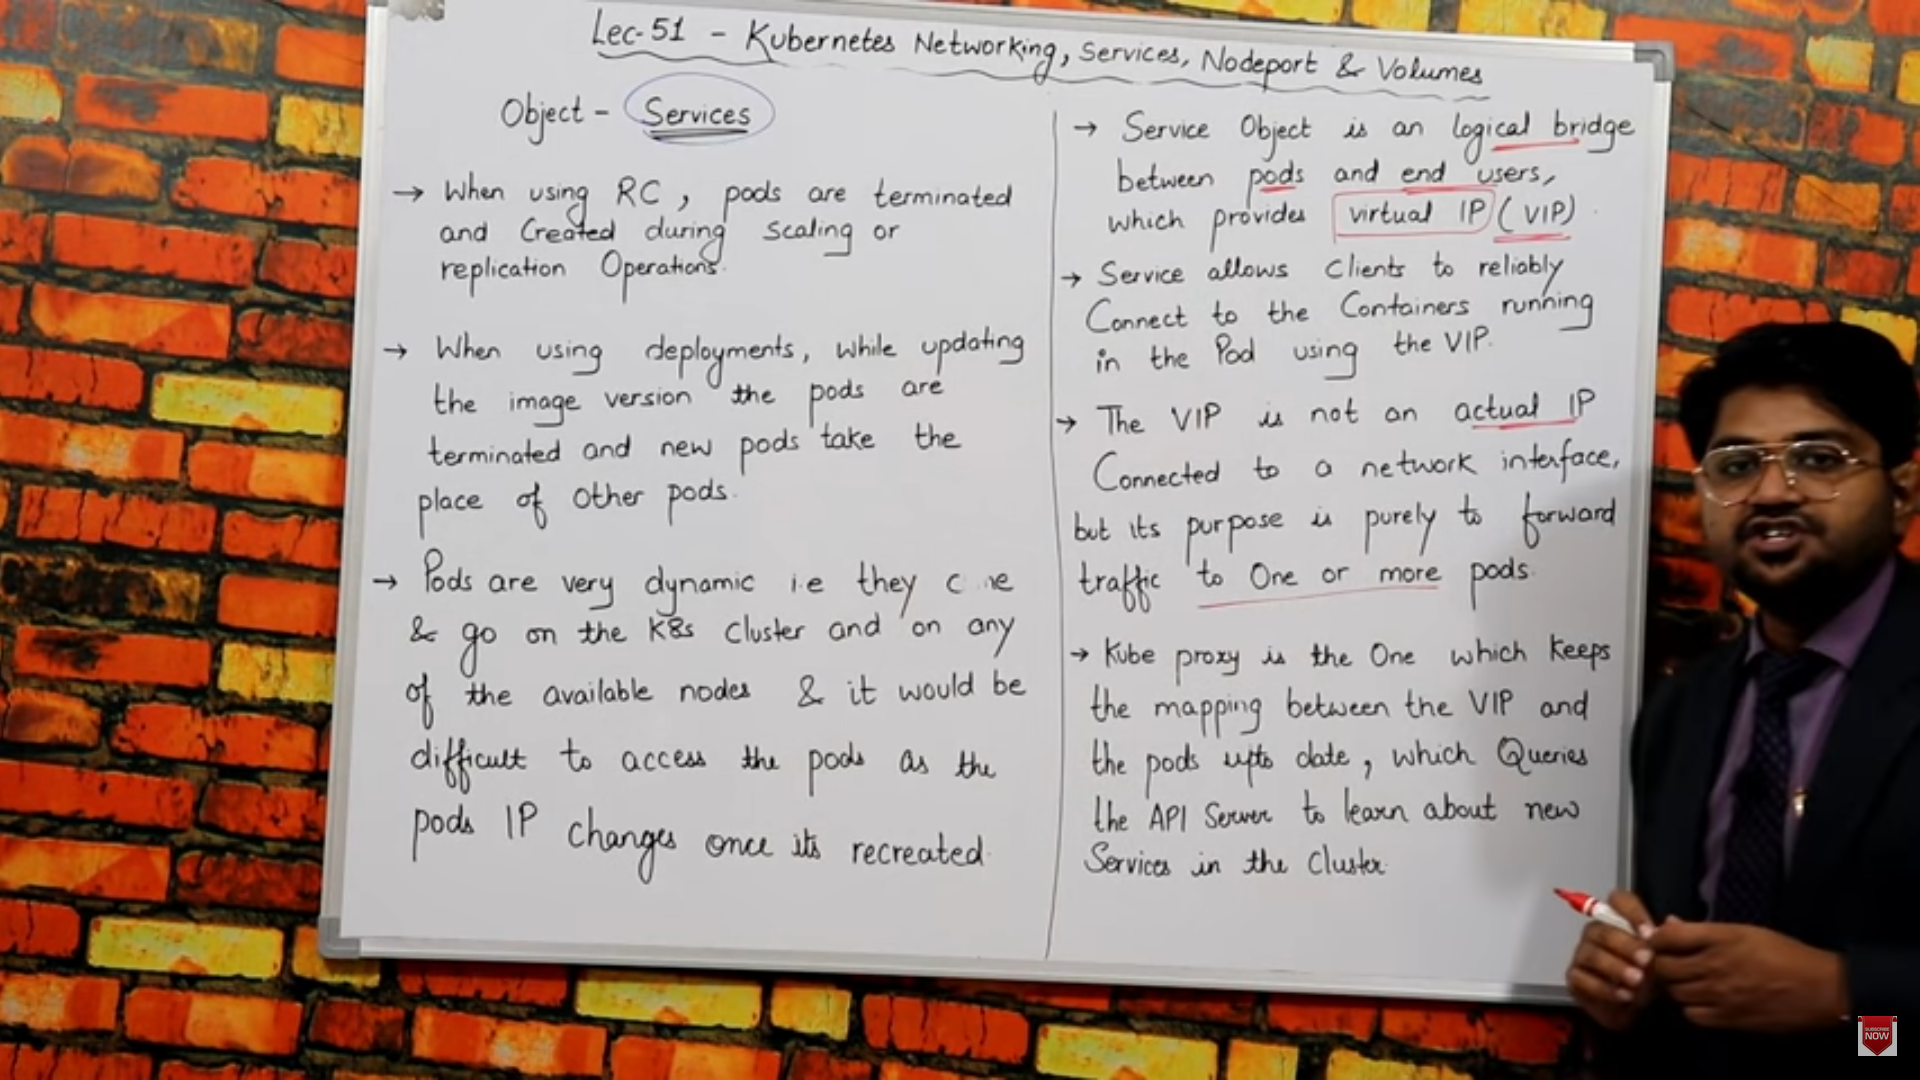 Lec-51 - Kubernetes Networking, Services, Nodeport & Volumes
Object - Services
→ When using RC, pods are terminated
and Created during Scaling or
replication Operations.
→ When using deployments, while updating
the image version the pods are
terminated and new pods take the
place of Other pods.
→ Pods are very dynamic i.e they
& go on the K8s Cluster and on any
of the available nodes & it would be
difficult to access the pods as the
pods IP Changes once its recreated.
→ Service Object is an logical bridge
between pods and end users,
which provides virtual IP (VIP).
→ Service allows Clients to reliably
Connect to the Containers running
in the Pod using the VIP.
→ The VIP is not an actual IP
Connected to a network interface,
but its purpose is purely to forward
traffic to One or more pods.
→ Kube proxy is the One which Keeps
the mapping between the VIP and
the pods upto date, which Queries
the API Server to learn about new
Services in the Cluster.
SUBSCRIBE
NOW